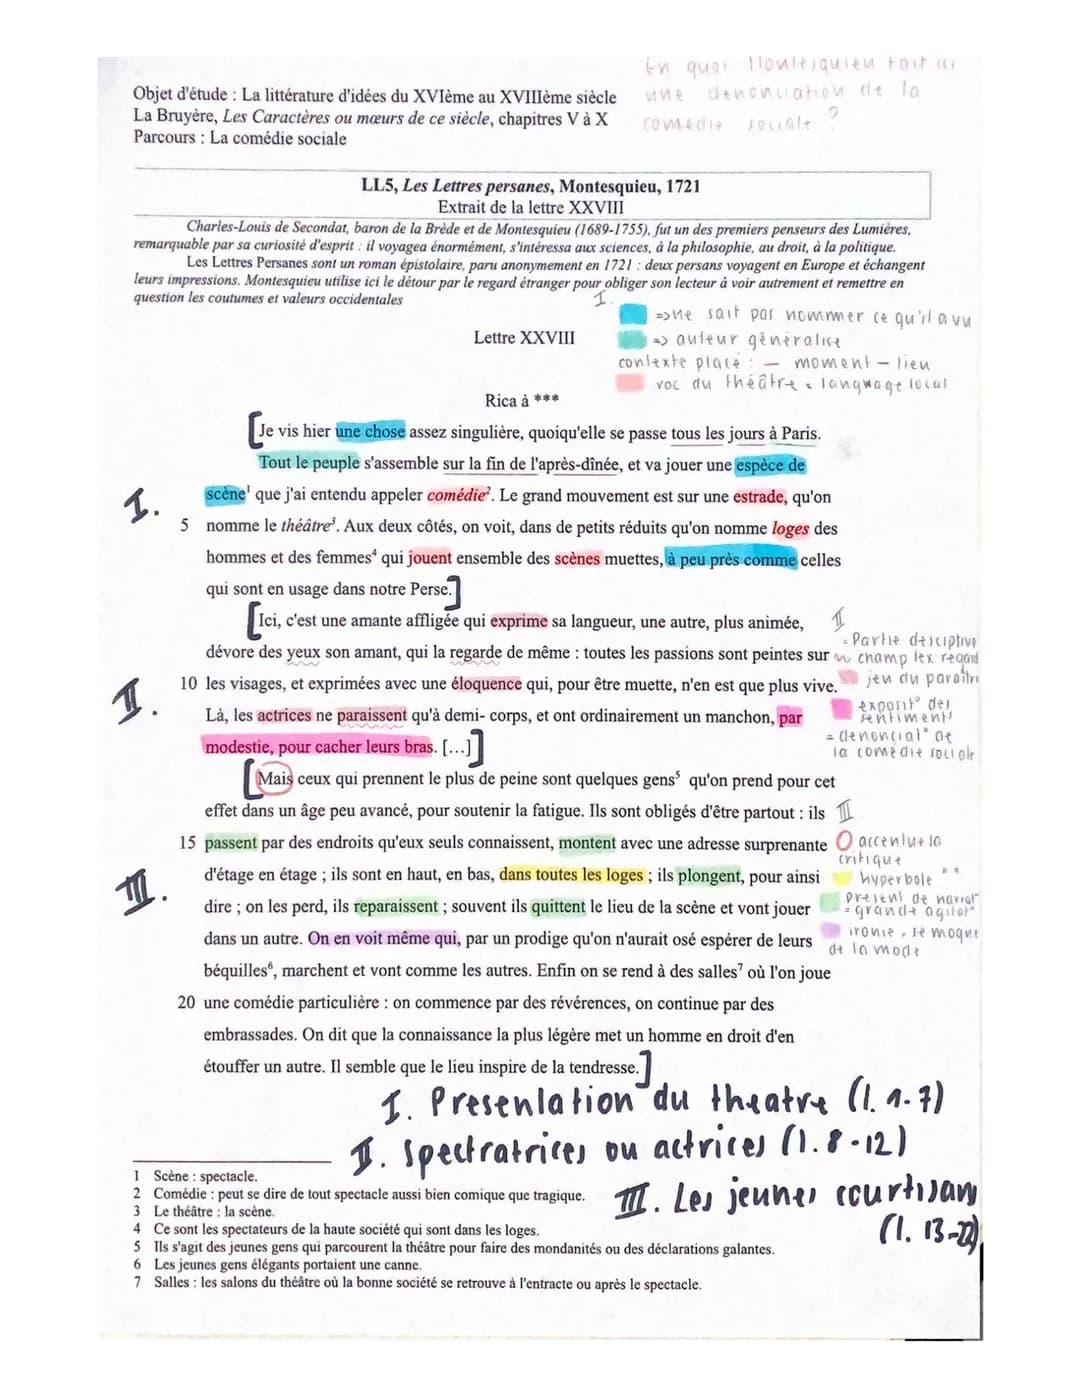 En quoi Montesquieu fait ici
une dénonciation de la
comédie sociale ?
Objet d'étude : La littérature d'idées du XVIème au XVIIIème siècle
La Bruyère, Les Caractères ou mœurs de ce siècle, chapitres V à X
Parcours : La comédie sociale
LL5, Les Lettres persanes, Montesquieu, 1721
Extrait de la lettre XXVIII
Charles-Louis de Secondat, baron de la Brède et de Montesquieu (1689-1755), fut un des premiers penseurs des Lumières,
remarquable par sa curiosité d'esprit : il voyagea énormément, s'intéressa aux sciences, à la philosophie, au droit, à la politique.
Les Lettres Persanes sont un roman épistolaire, paru anonymement en 1721 : deux persans voyagent en Europe et échangent
leurs impressions. Montesquieu utilise ici le détour par le regard étranger pour obliger son lecteur à voir autrement et remettre en
question les coutumes et valeurs occidentales
I.
=> ne sait pas nommer ce qu'il a vu
=> auteur généralise
contexte placé : - moment - lieu
voc du théâtre = langwage local
Lettre XXVIII
Rica à ***
[Je vis hier une chose assez singulière, quoiqu'elle se passe tous les jours à Paris.
Tout le peuple s'assemble sur la fin de l'après-dînée, et va jouer une espèce de
I.
scène¹ que j'ai entendu appeler comédie². Le grand mouvement est sur une estrade, qu'on
5 nomme le théâtre³. Aux deux côtés, on voit, dans de petits réduits qu'on nomme loges des
hommes et des femmes⁴ qui jouent ensemble des scènes muettes, à peu près comme celles
qui sont en usage dans notre Perse.]
[Ici, c'est une amante affligée qui exprime sa langueur, une autre, plus animée,
II
= Partie desciptive
dévore des yeux son amant, qui la regarde de même : toutes les passions sont peintes sur
champ lex regard
II.
10 les visages, et exprimées avec une éloquence qui, pour être muette, n'en est que plus vive.
jeu du paraître
Là, les actrices ne paraissent qu'à demi- corps, et ont ordinairement un manchon, par
exposit° des
sentiments
modestie, pour cacher leurs bras. [...]]
= dénonciat° de
la comédie sociale
[Mais ceux qui prennent le plus de peine sont quelques gens⁵ qu'on prend pour cet
effet dans un âge peu avancé, pour soutenir la fatigue. Ils sont obligés d'être partout : ils
III
15 passent par des endroits qu'eux seuls connaissent, montent avec une adresse surprenante
O accentue la
critique
III.
d'étage en étage ; ils sont en haut, en bas, dans toutes les loges ; ils plongent, pour ainsi
hyperbole
dire ; on les perd, ils reparaissent ; souvent ils quittent le lieu de la scène et vont jouer
présent de narrat°
= grande agitat°
dans un autre. On en voit même qui, par un prodige qu'on n'aurait osé espérer de leurs
ironie, se moque
de la mode
béquilles⁶, marchent et vont comme les autres. Enfin on se rend à des salles⁷ où l'on joue
20 une comédie particulière : on commence par des révérences, on continue par des
embrassades. On dit que la connaissance la plus légère met un homme en droit d'en
étouffer un autre. Il semble que le lieu inspire de la tendresse.]
I. Présentation du theatre (l. 1-7)
II. Spectratrices ou actrices (l. 8-12)
III. Les jeunes courtisans
(l. 13-22)
1 Scène : spectacle.
2 Comédie : peut se dire de tout spectacle aussi bien comique que tragique.
3 Le théâtre : la scène.
4 Ce sont les spectateurs de la haute société qui sont dans les loges.
5 Ils s'agit des jeunes gens qui parcourent la théâtre pour faire des mondanités ou des déclarations galantes.
6 Les jeunes gens élégants portaient une canne.
7 Salles : les salons du théâtre où la bonne société se retrouve à l'entracte ou après le spectacle.